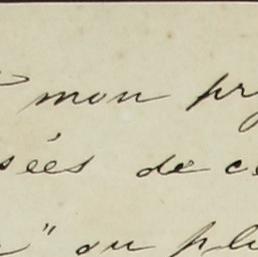 mon pr
sées de ce
" ou plu